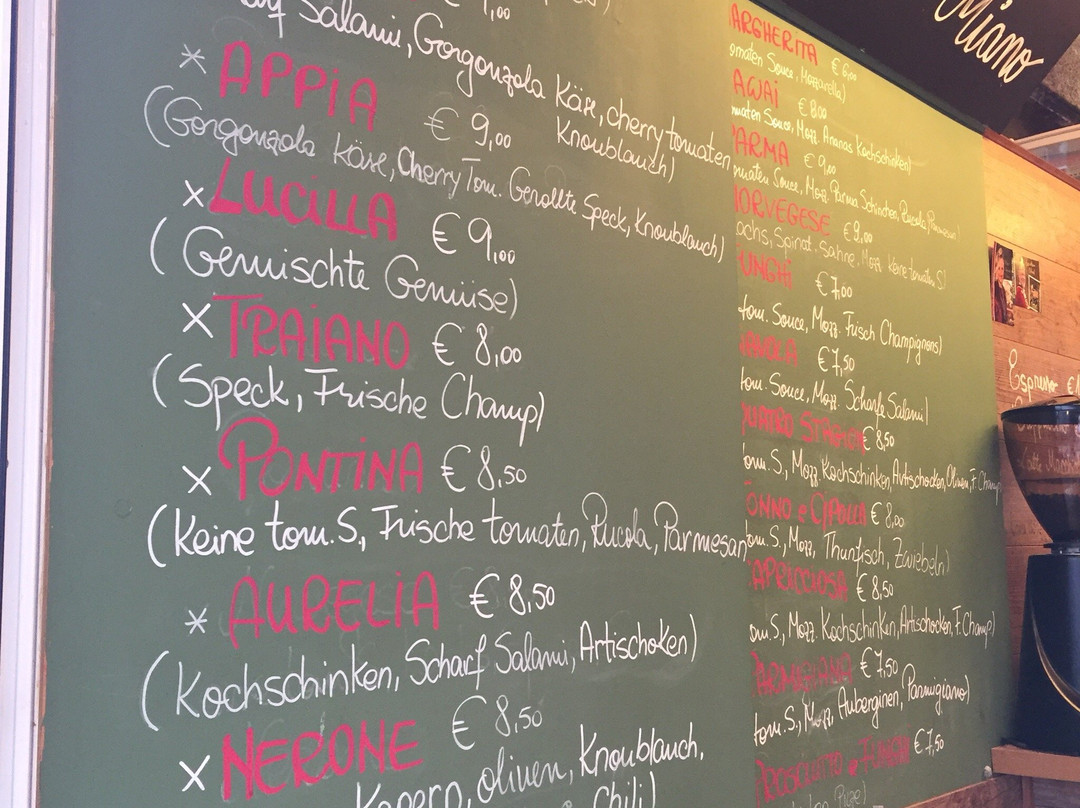 € 1,00
Salami, Gorgonzola Käse, cherry tomaten
Knoublauch)
* APPIA € 9,00
(Gorgonzola Käse, Cherry Tom. Gerollte Speck, Knoublauch)
x LUCILLA € 9,00
(Gemischte Gemüise)
x TRAIANO € 8,00
(Speck, Frische Champ)
x PONTINA € 8,50
(Keine tom. S., Frische tomaten, Rucola, Parmesan
* AURELIA € 8,50
(Kochschinken, Scharf Salami, Artischoken)
x NERONE € 8,50
Kapern, oliven, Knoublauch,
Chili)
ARGHERITA € 6,00
omaten Souce, Mozzarella)
AWAI € 8,00
maten Souce, Mozz. Ananas Kochschinken)
ARMA € 9,00
omaten Souce, Mozz Parma Schinken, Rucola, Parmesan)
ORVEGESE € 9,00
achs, Spinat, Sahne, Mozz keine tomaten S)
UNGHI € 7,00
tom. Souce, Mozz. Frisch Champignons)
€ 7,50
tom. Souce, Mozz. Scharfe Salami)
UATRO STAGIONI € 8,50
tom. S, Mozz, Kochschinken, Artischocken, Oliven, F. Champ
ONNO e CIPOLLA € 8,00
tom. S, Mozz, Thunfisch, Zwiebeln)
APRICCIOSA € 8,50
om. S, Mozz. Kochschinken, Artischocken, F. Champ)
ARMIGIANA € 7,50
tom. S., Mozz, Auberginen, Parmigiano)
PROSCIUTTO e FUNGHI € 7,50
Miano
Espresso €